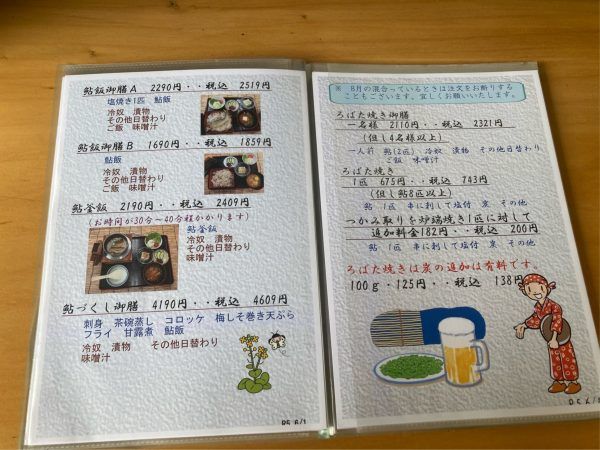 鮎飯御膳A 2290円・・税込 2519円
塩焼き1匹 鮎飯
冷奴 漬物
その他日替わり
ご飯 味噌汁
鮎飯御膳B 1690円・・税込 1859円
鮎飯
冷奴 漬物
その他日替わり
ご飯 味噌汁
鮎釜飯 2190円・・税込 2409円
(お時間が30分〜40分程かかります)
鮎釜飯
冷奴 漬物
その他日替わり
味噌汁
鮎づくし御膳 4190円・・税込 4609円
刺身 茶碗蒸し コロッケ 梅しそ巻き天ぷら
フライ 甘露煮 鮎飯
冷奴 漬物 その他日替わり
味噌汁
R5.6/1
※ 8月の混合っているときは注文をお断りする
こともございます。宜しくお願いいたします。
ろばた焼き御膳
一名様 2110円・・税込 2321円
(但し4名様以上)
一人前 鮎(2匹) 冷奴 漬物 その他日替わり
ご飯 味噌汁
ろばた焼き
1匹 675円・・税込 743円
(但し鮎8匹以上)
鮎 1匹 串に刺して塩付 炭 その他
つかみ取りを炉端焼き1匹に対して
追加料金182円・・税込 200円
鮎 1匹 串に刺して塩付 炭 その他
ろばた焼きは炭の追加は有料です。
100g・125円・・税込 138円